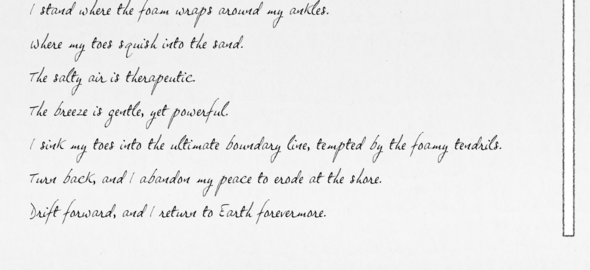 I stand where the foam wraps around my ankles.
where my toes squish into the sand.
The salty air is therapeutic.
The breeze is gentle, yet powerful.
I sink my toes into the ultimate boundary line, tempted by the foamy tendrils.
Turn back, and I abandon my peace to erode at the shore.
Drift forward, and I return to Earth forevermore.